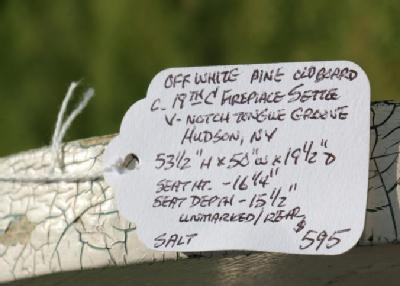 OFF WHITE PINE OLD BOARD
C. 19TH C FIREPLACE SETTLE
V-NOTCH TONGUE GROOVE
HUDSON, NY
53 1/2" H x 50" W x 19 1/2" D
SEAT HT. - 16 1/4"
SEAT DEPTH - 15 1/2"
UNMARKED/REAR
SALT $595